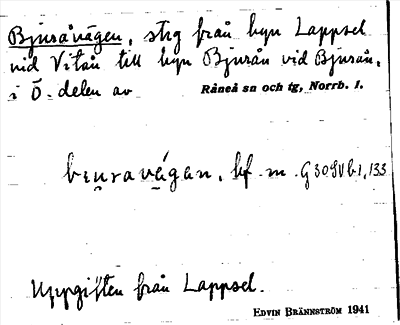 Bjuråvägen, stig från byn Lappsel
vid Vitån till byn Bjurån vid Bjurån,
i Ö. delen av Råneå sn och tg, Norrb. l.
bɩu̯ravę́gan, bf. m. G 30 SV b 1, 133
Uppgiften från Lappsel.
EDVIN BRÄNNSTRÖM 1941